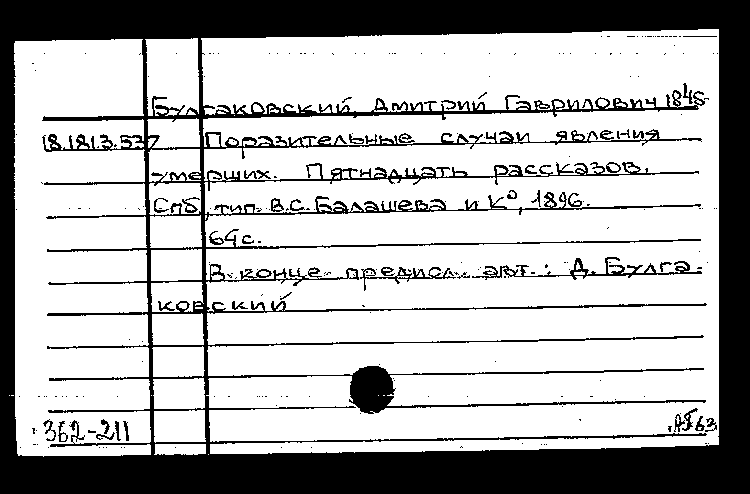 Булгаковский, Дмитрий Гаврилович, 1845-
18.181.3.537 Поразительные случаи явления
умерших. Пятнадцать рассказов.
Спб, тип. В.С. Балашева и К⁰, 1896.
64 с.
В конце предисл. авт.: Д. Булга-
ковский
362-211